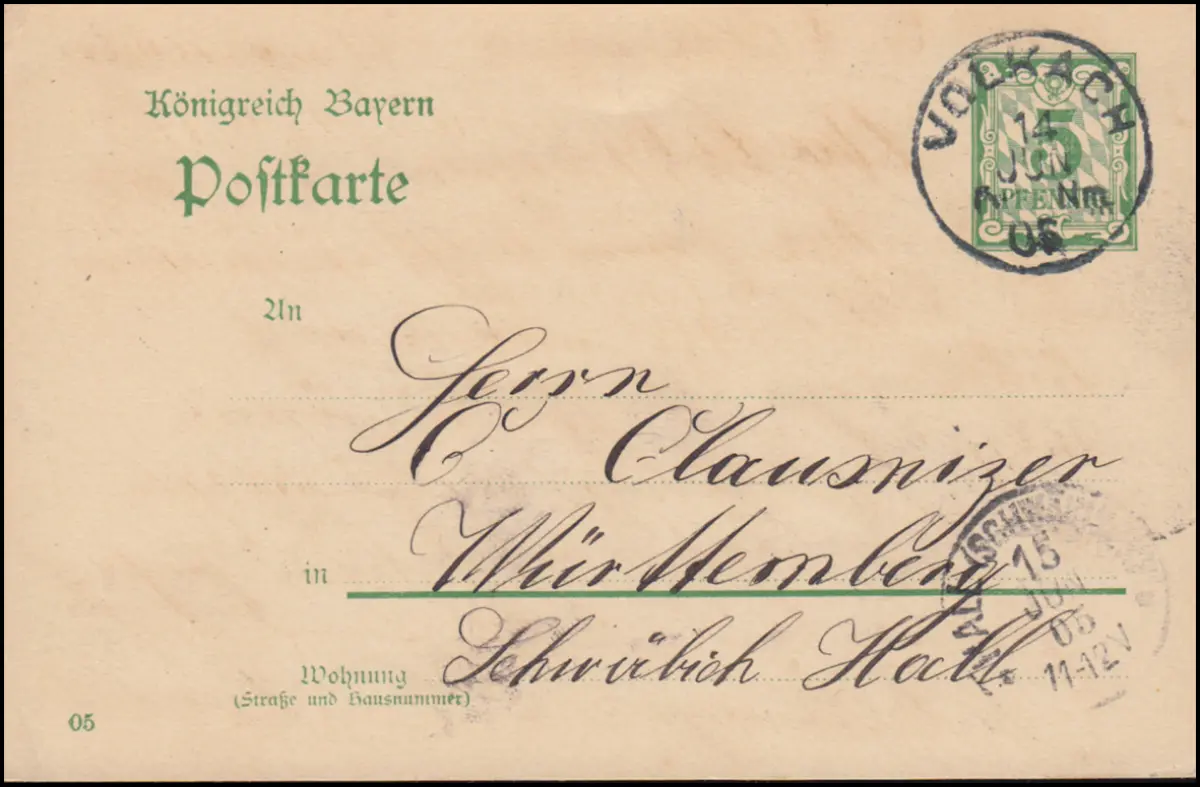 Königreich Bayern
Postkarte
VOLKACH
14
JUN
Nm.
5
PFENNIG
An
Herrn
C Clausnizer
in Württemberg
Schwäbich Hall
Wohnung
(Straße und Hausnummer)
05
HALL (SCHWÄB.
15
JUN
05
11-12V